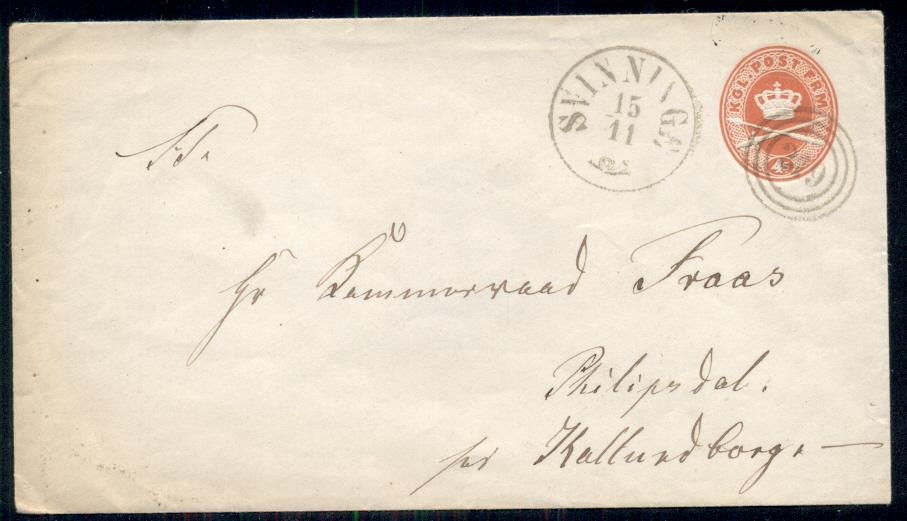 KGL POST FRM
4 S
SVINNINGE
15
11
S. T.
Hr Kammerraad Fraas
Philipsdal.
pr Kallundborg. —